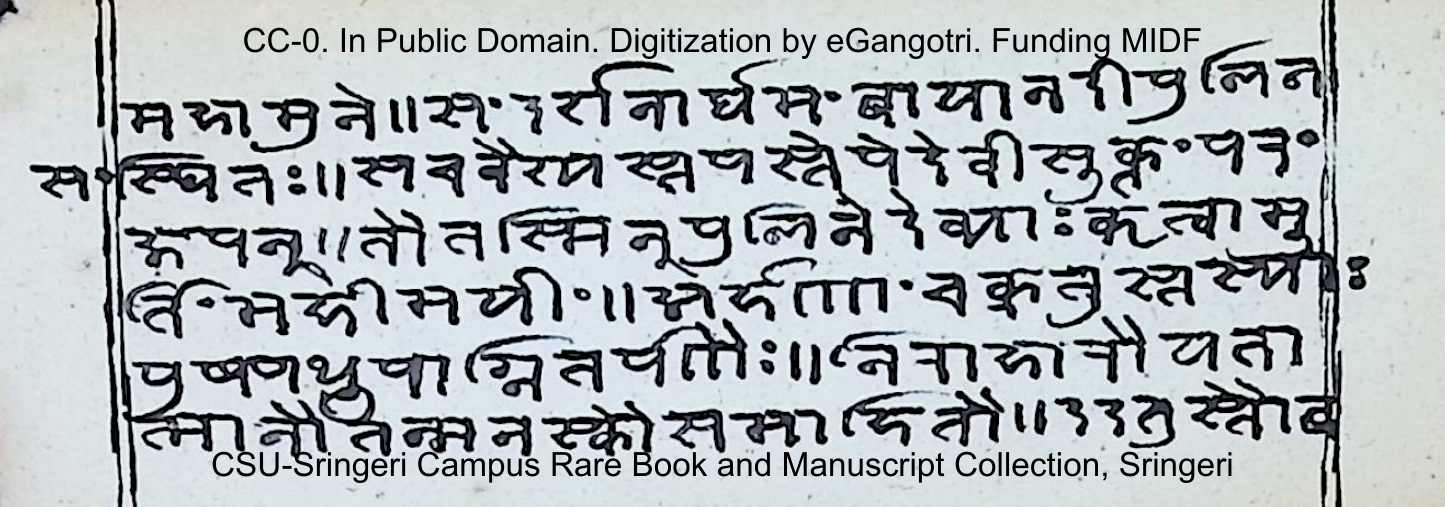 CC-0. In Public Domain. Digitization by eGangotri. Funding MIDF
महामुने॥संदर्शनार्थमंबायानदीपुलिन
संस्थितः॥सचवैश्यस्तपस्तेपेदेवीसुक्तंपरं
जपन्॥तौतस्मिन्पुलिनेदेव्याःकृत्वामु
र्तिंमहीमयीं॥अर्हणांचक्रतुस्तस्याः
पुष्पधुपाग्नितर्पणैः॥निराहारौयता
त्मानौतन्मनस्कौसमाहितौ॥ददतुस्तौब
CSU-Sringeri Campus Rare Book and Manuscript Collection, Sringeri